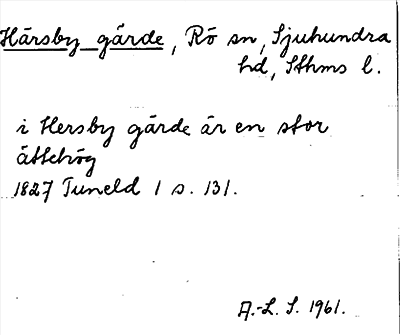 Härsby gärde, Rö sn, Sjuhundra
hd, Sthms l.
i Hersby gärde är en stor
ättehög
1827 Tuneld 1 s. 131.
A.-L. S. 1961.